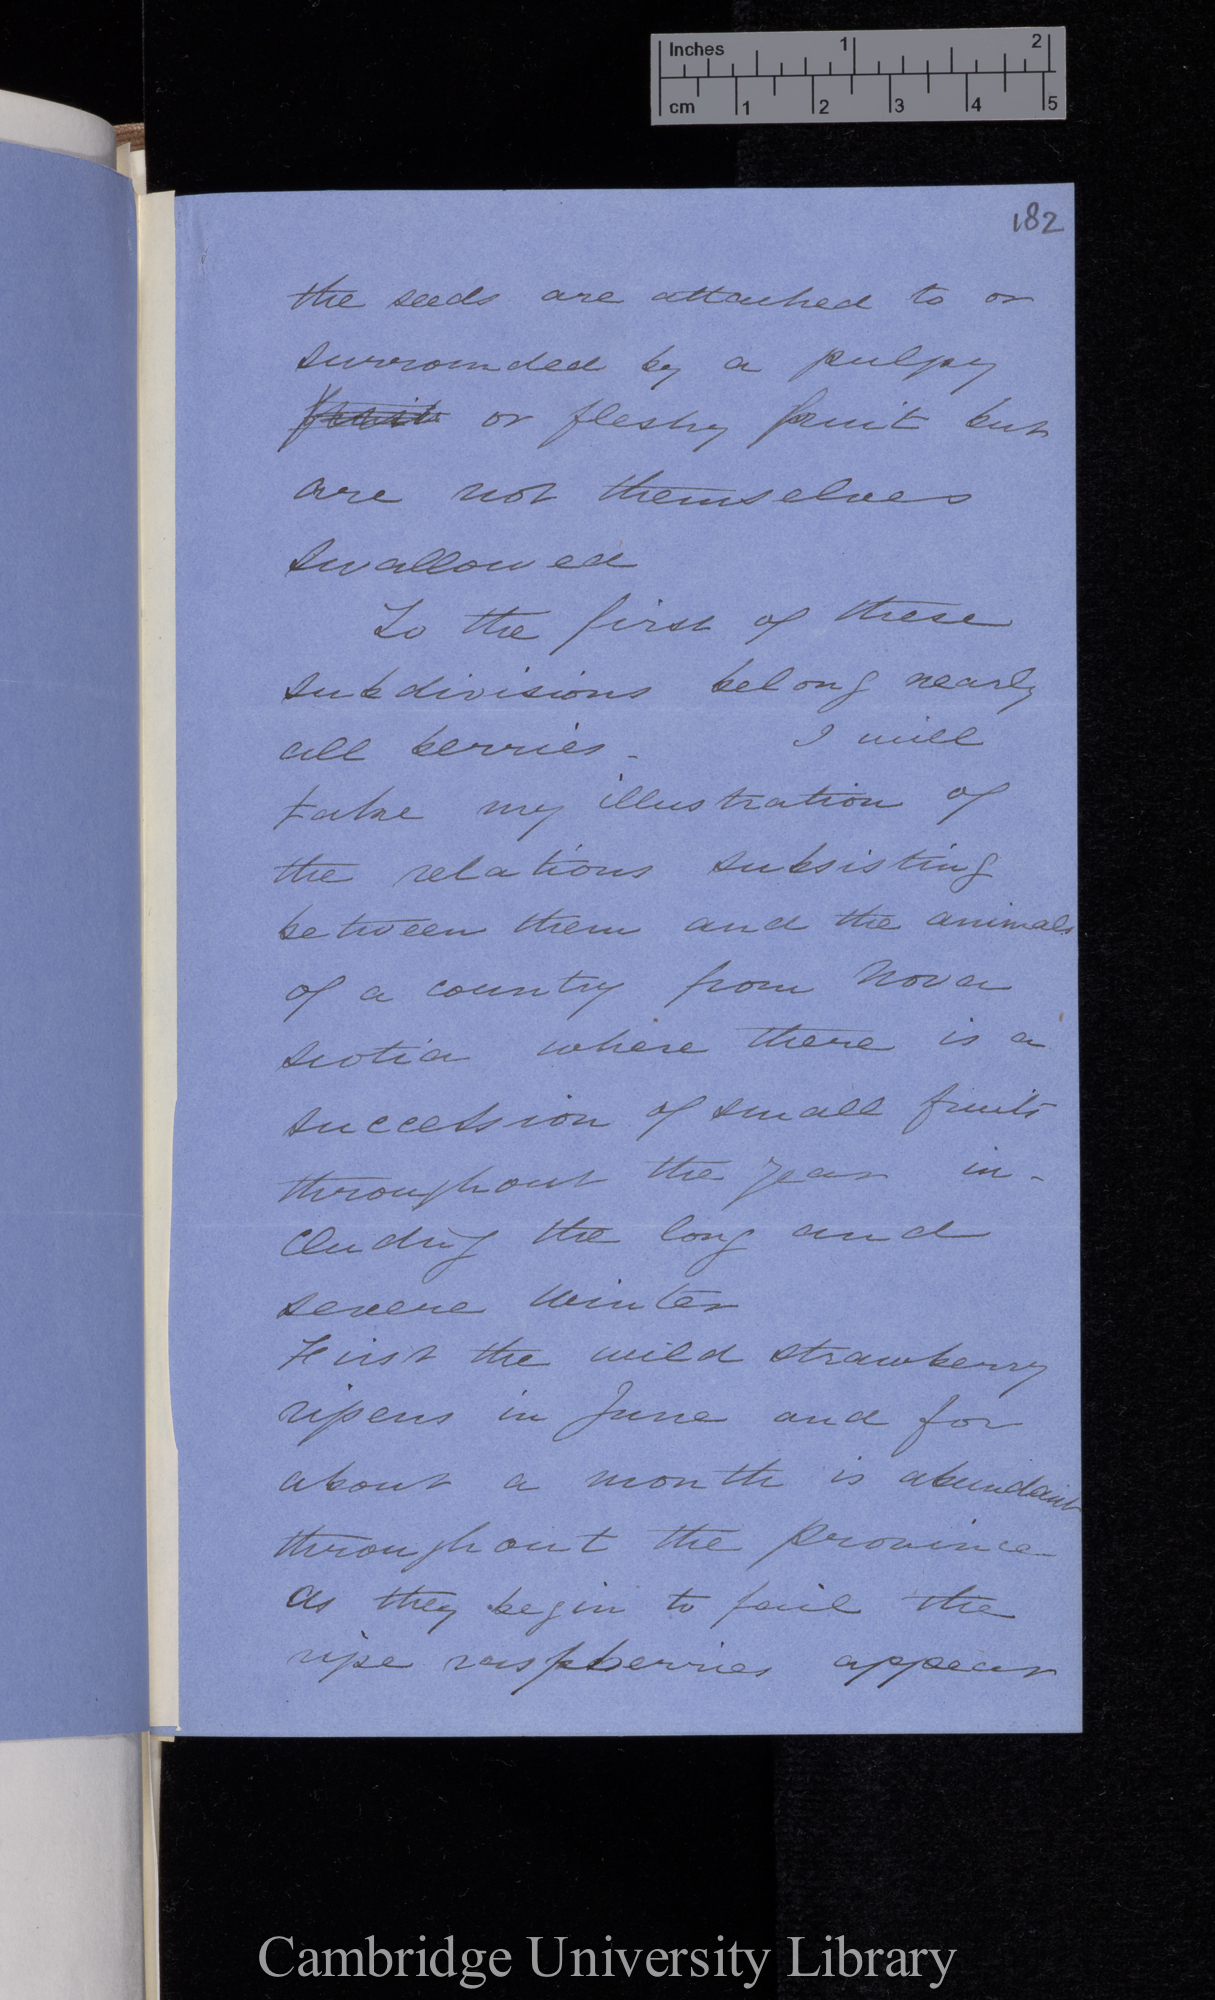 Inches 1 2
cm 1 2 3 4 5
182
the seeds are attached to or
surrounded by a pulpy
fruit or fleshy fruit but
are not themselves
swallowed
To the first of these
subdivisions belong nearly
all berries. I will
take my illustration of
the relations subsisting
between them and the animals
of a country from Nova
Scotia where there is a
succession of small fruits
throughout the year in-
cluding the long and
severe winter
First the wild strawberry
ripens in June and for
about a month is abundant
throughout the province
As they begin to fail the
ripe raspberries appear
Cambridge University Library